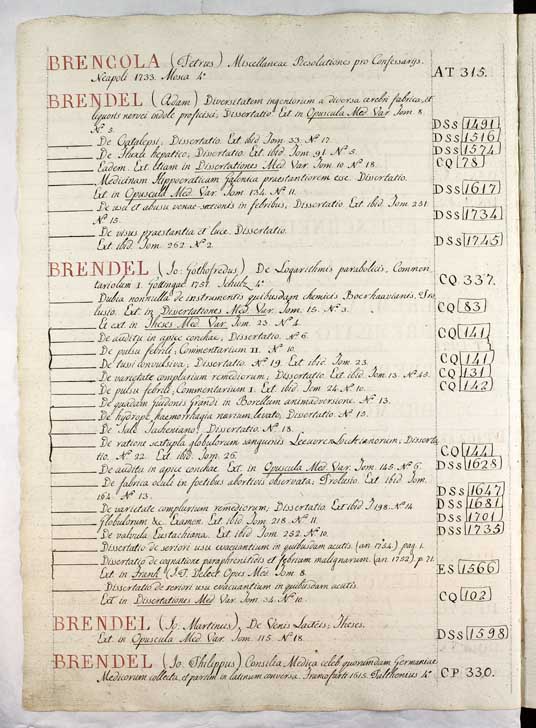 BRENCOLA (Petrus) Miscellaneae Resolutiones pro Confessarijs.
Neapoli 1733. Mosca 4° AT 315.
BRENDEL (Adam) Diversitatem ingeniorum a diversa cerebri fabrica, et
liquoris nervei indole proficisci, Dissertatio. Ext. in Opuscula Med. Var. Tom. 8.
N° 5. DSs 1491
De Catalepsi, Dissertatio. Ext. ibid. Tom. 33. N° 17. DSs 1516
De Fluxu hepatico, Dissertatio. Ext. ibid. Tom. 91. N° 5. DSs 1574
Eadem. Ext. Etiam in Dissertationes Med. Var. Tom. 10. N° 18. CQ 78
Medicinam Hippocraticam Galenica praestantiorem esse. Dissertatio.
Ext. in Opuscula Med. Var. Tom. 134. N° 11. DSs 1617
De usu et abusu venae-sectionis in febribus, Dissertatio. Ext. ibid. Tom. 251.
N° 15. DSs 1734
De visus praestantia et luce. Dissertatio.
Ext. ibid. Tom. 262. N° 2. DSs 1745
BRENDEL (Jo: Gothofredus) De Logarithmis parabolicis, Commen-
tariolum 1. Gottingae 1751. Schulz. 4° CQ 337.
Dubia nonnulla de instrumentis quibusdam chemicis Boerhaavianis. Pro-
lusio. Ext. in Dissertationes Med. Var. Tom. 15. N° 3. CQ 83
Et ext in Theses Med. Var. Tom. 23. N° 4.
De auditu in apice conchae, Dissertatio. N° 6. CQ 141
De pulsu febrili, Commentarium II. N° 10.
De tussi convulsiva, Dissertatio. N° 19. Ext. ibid. Tom. 23. CQ 141
De varietate complurium remediorum, Dissertatio. Ext. ibid. Tom. 13. N° 45. CQ 131
De pulsu febrili, Commentarium 1. Ext. ibid. Tom. 24. N° 10. CQ 142
De quadam Guidonis Grandi in Borellum animadversione. N° 13.
De hydrope, haemorrhagia narium levato, Dissertatio. N° 15.
De Sale Tacheniano, Dissertatio. N° 18.
De ratione sextupla globulorum sanguinis Leeuwenhoeckianorum, Disserta-
tio. N° 22. Ext. ibid. Tom. 26. CQ 144
De auditu in apice conchae. Ext. in Opuscula Med. Var. Tom. 145. N° 6. DSs 1628
De fabrica oculi in foetibus abortivis observata, Prolusio. Ext. ibid. Tom.
164. N° 13. DSs 1647
De varietate complurium remediorum, Dissertatio. Ext ibid T 198. N° 14 DSs 1681
Globulorum &c. Examen. Ext. ibid. Tom. 218. N° 11. DSs 1701
De valvula Eustachiana. Ext. ibid. Tom. 252. N° 10. DSs 1735
Dissertatio de seriori usu evacuantium in quibusdam acutis. (an. 1754) pag. 1.
Dissertatio de cognatione paraphrenitidis et febrium malignarum. (an. 1752) p. 21.
Ext. in Frank (J. P. Delect. Opus Med. Tom. 8. ES 1566
Dissertatio de seriori usu evacuantium in quibusdam acutis.
Ext. in Dissertationes Med. Var. Tom. 34. N° 10. CQ 102
BRENDEL (Jo: Martinus), De Venis Lacteis, Theses.
Ext. in Opuscula Med. Var. Tom. 115. N° 18. DSs 1598
BRENDEL (Jo. Philippus) Consilia Medica celeb. quorumdam Germaniae
Medicorum collecta, et partim in latinum conversa. Francofurti 1615. Palthenius 4° CP 330.